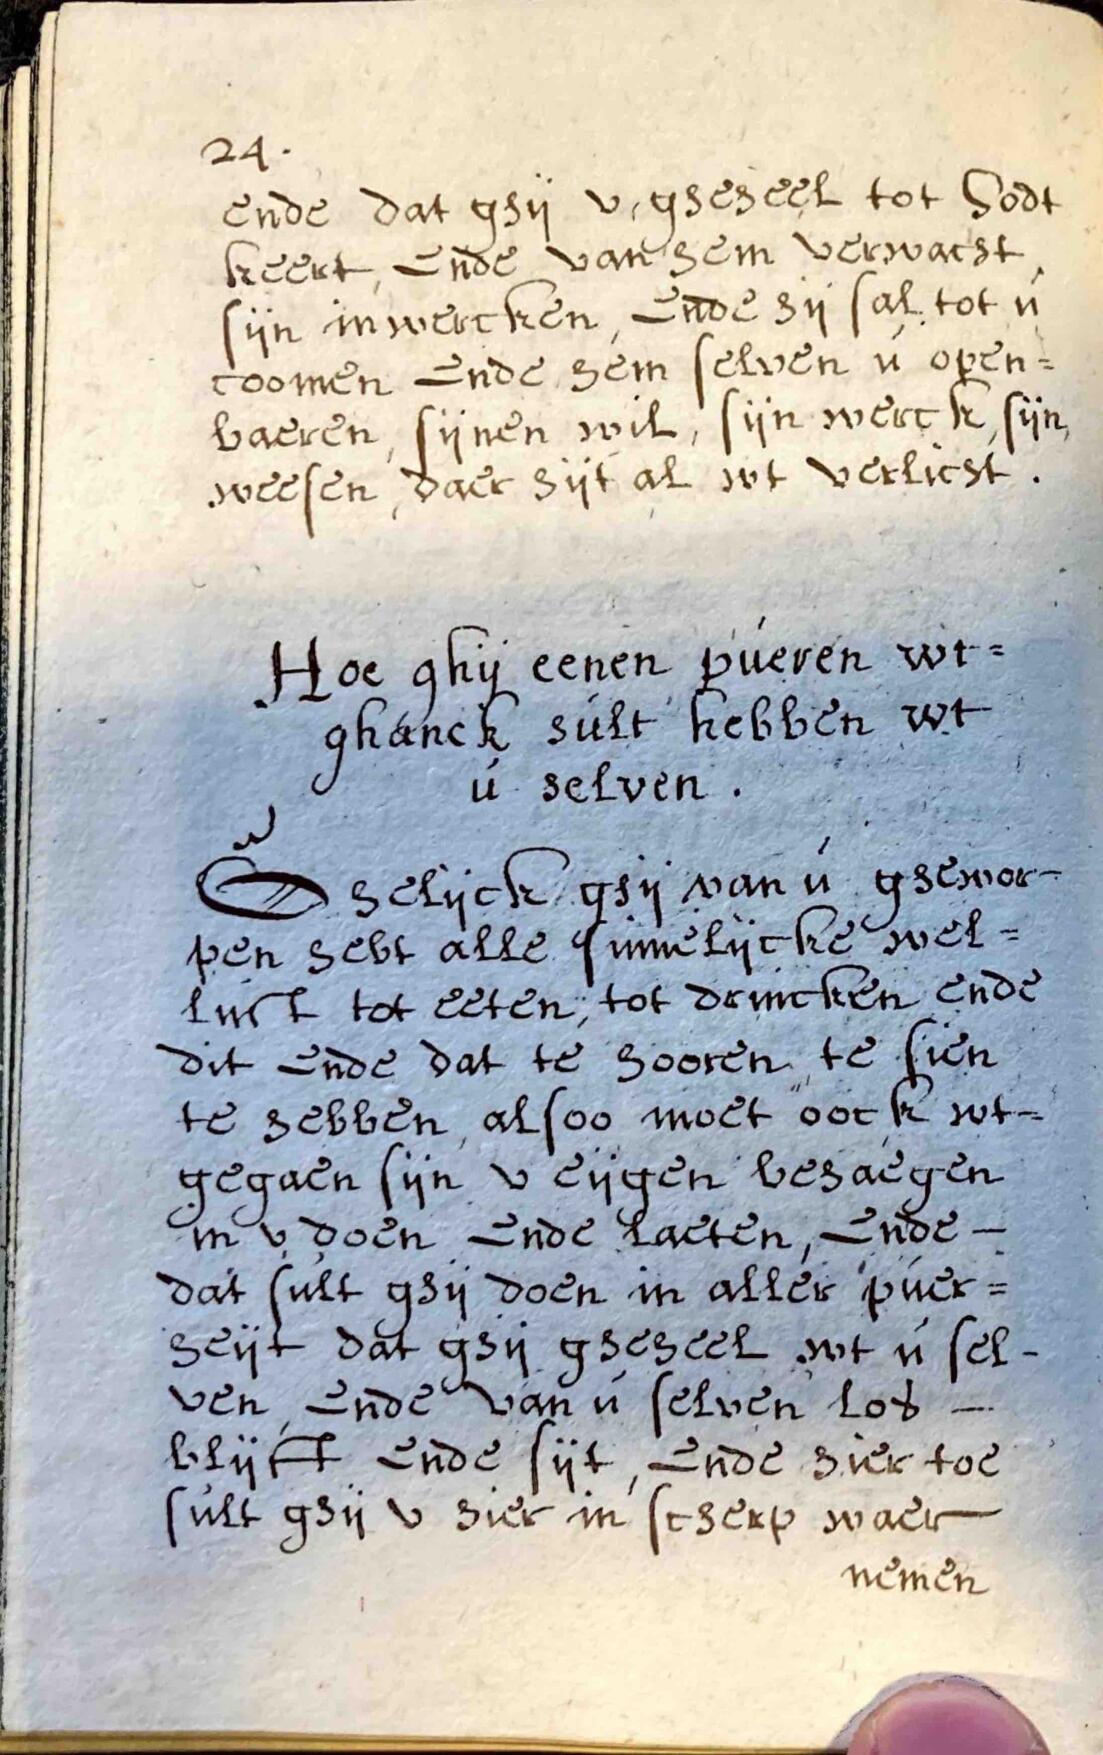 24.
ende dat ghij v, gheheel tot Godt
keert, Ende van hem verwacht,
sijn inwercken, Ende hij sal tot ú
coomen Ende hem selven ú open=
baeren, sijnen wil, sijn werck, sijn,
weesen, daer hijt al wt verlicht.
Hoe ghij eenen púeren wt=
ghanck súlt hebben wt
ú selven.
Ghelijck ghij van ú ghewor-
pen hebt alle sinnelijcke wel=
lust tot eeten, tot drincken ende
dit Ende dat te hooren te sien
te hebben, alsoo moet oock wt=
gegaen sijn v eijgen behaegen
in v doen Ende laeten, Ende –
dat súlt ghij doen in aller púer=
heijt dat ghij gheheel wt ú sel-
ven, Ende van ú selven los –
blijft Ende sijt, Ende hier toe
súlt ghij v hier in scherp waer
nemen